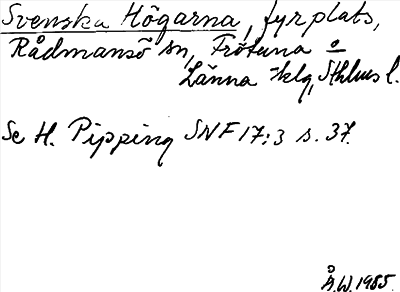 Svenska Högarna, fyrplats,
Rådmansö sn, Frötuna o
Länna sklg, Sthlms l.
Se H. Pipping SNF 17:3 s. 37.
Å.W. 1985.